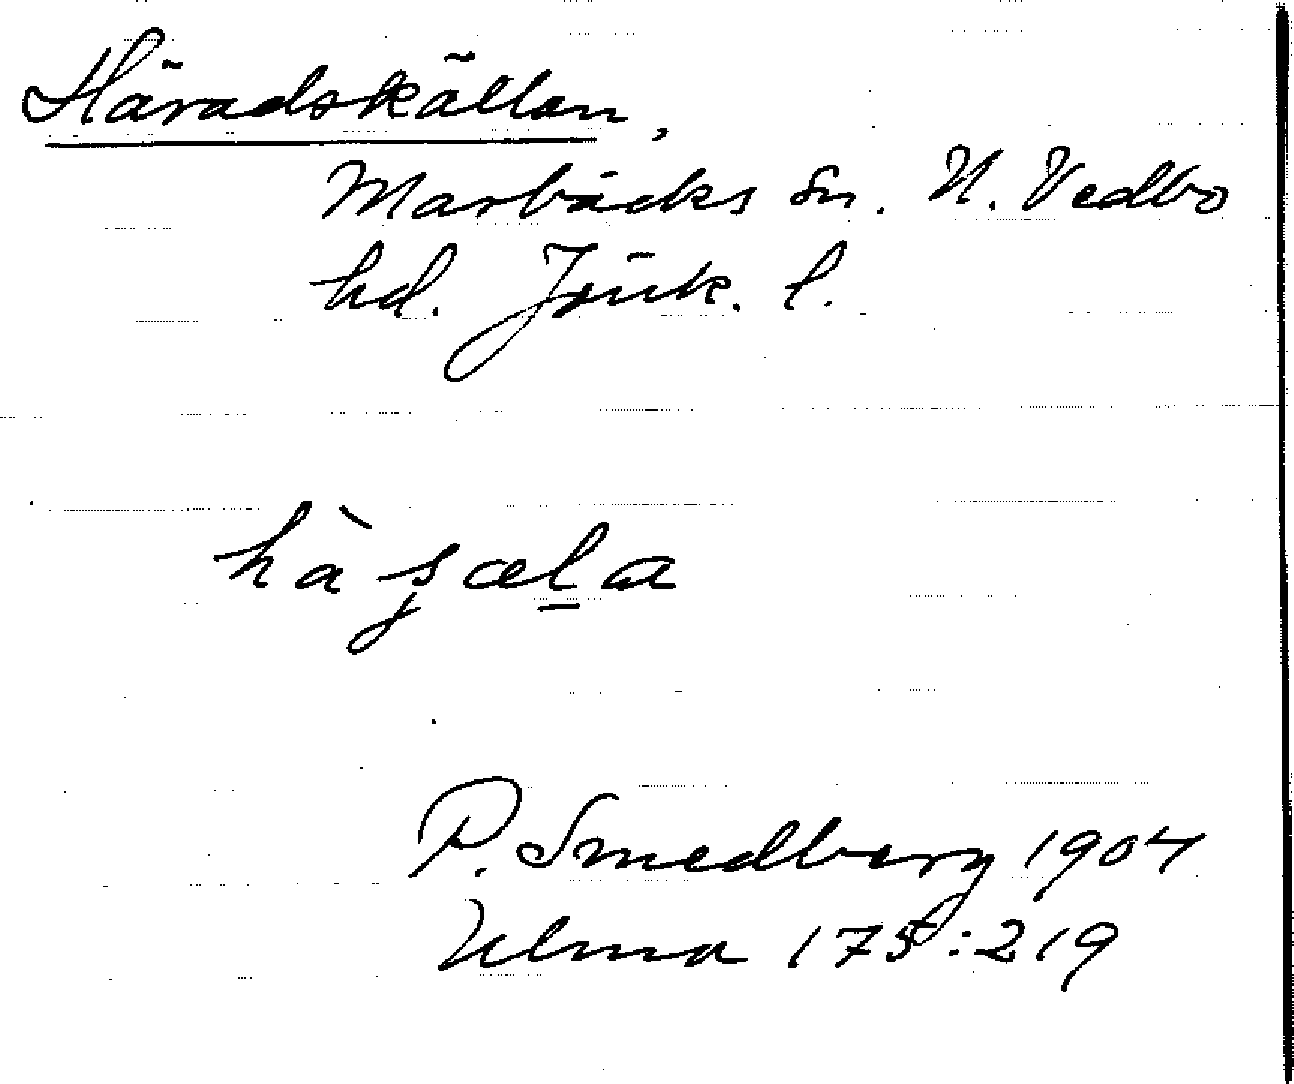 Häradskällan,
Marbäcks sn. N. Vedbo
hd. Jönk. l.
P. Smedberg 1904
Ulma 175:219